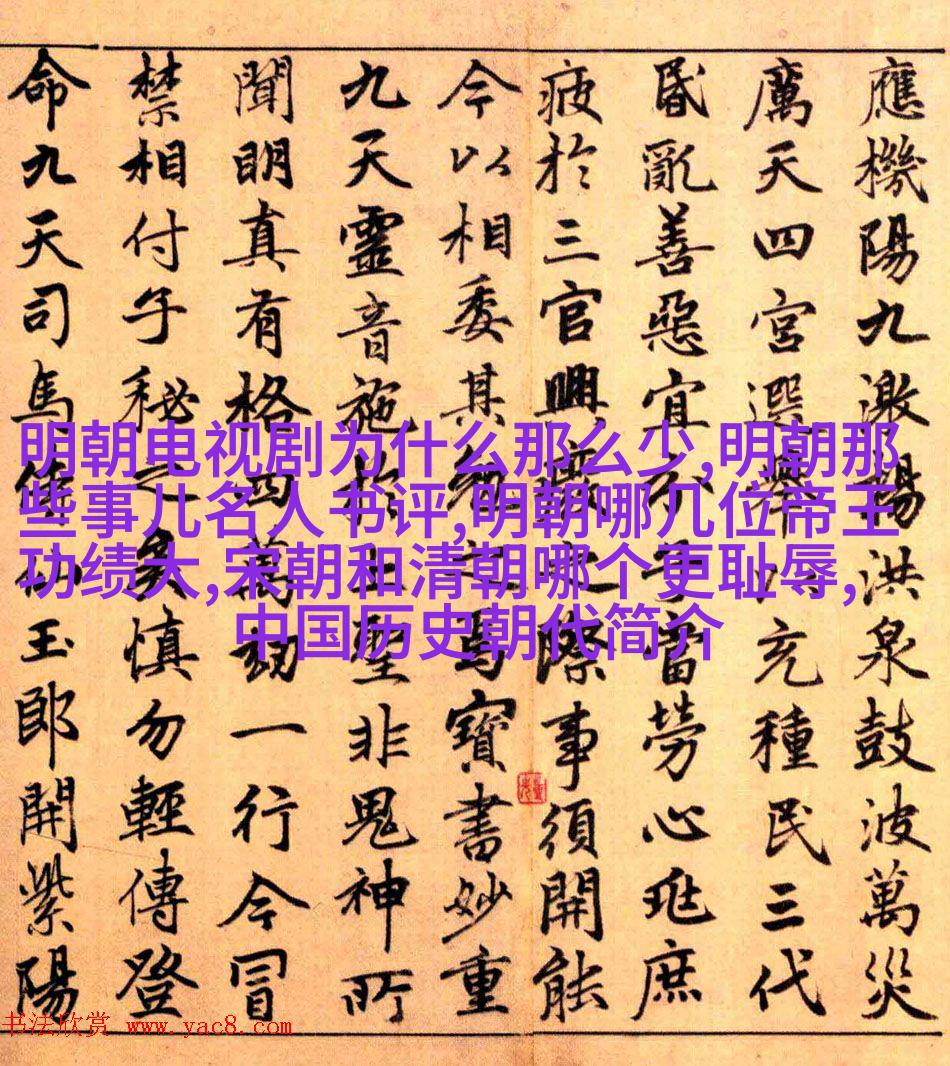 應機陽九激陽洪泉鼓波萬災
厲天四宮選舉充種民三代
昏亂善惡宜分子當勞心兆庶
疲於三官興廢之際事須開能
今以相委其勉之焉寶書妙重
九天靈音施於上聖非鬼神所
聞明真有格四萬劫一行今冒
禁相付子秘之矣慎勿輕傳登
命九天司馬侍仙玉郎開紫陽
明朝电视剧为什么那么少,明朝那
些事儿名人书评,明朝哪几位帝王
功绩大,宋朝和清朝哪个更耻辱,
中国历史朝代简介
书法欣赏 www.yac8.com